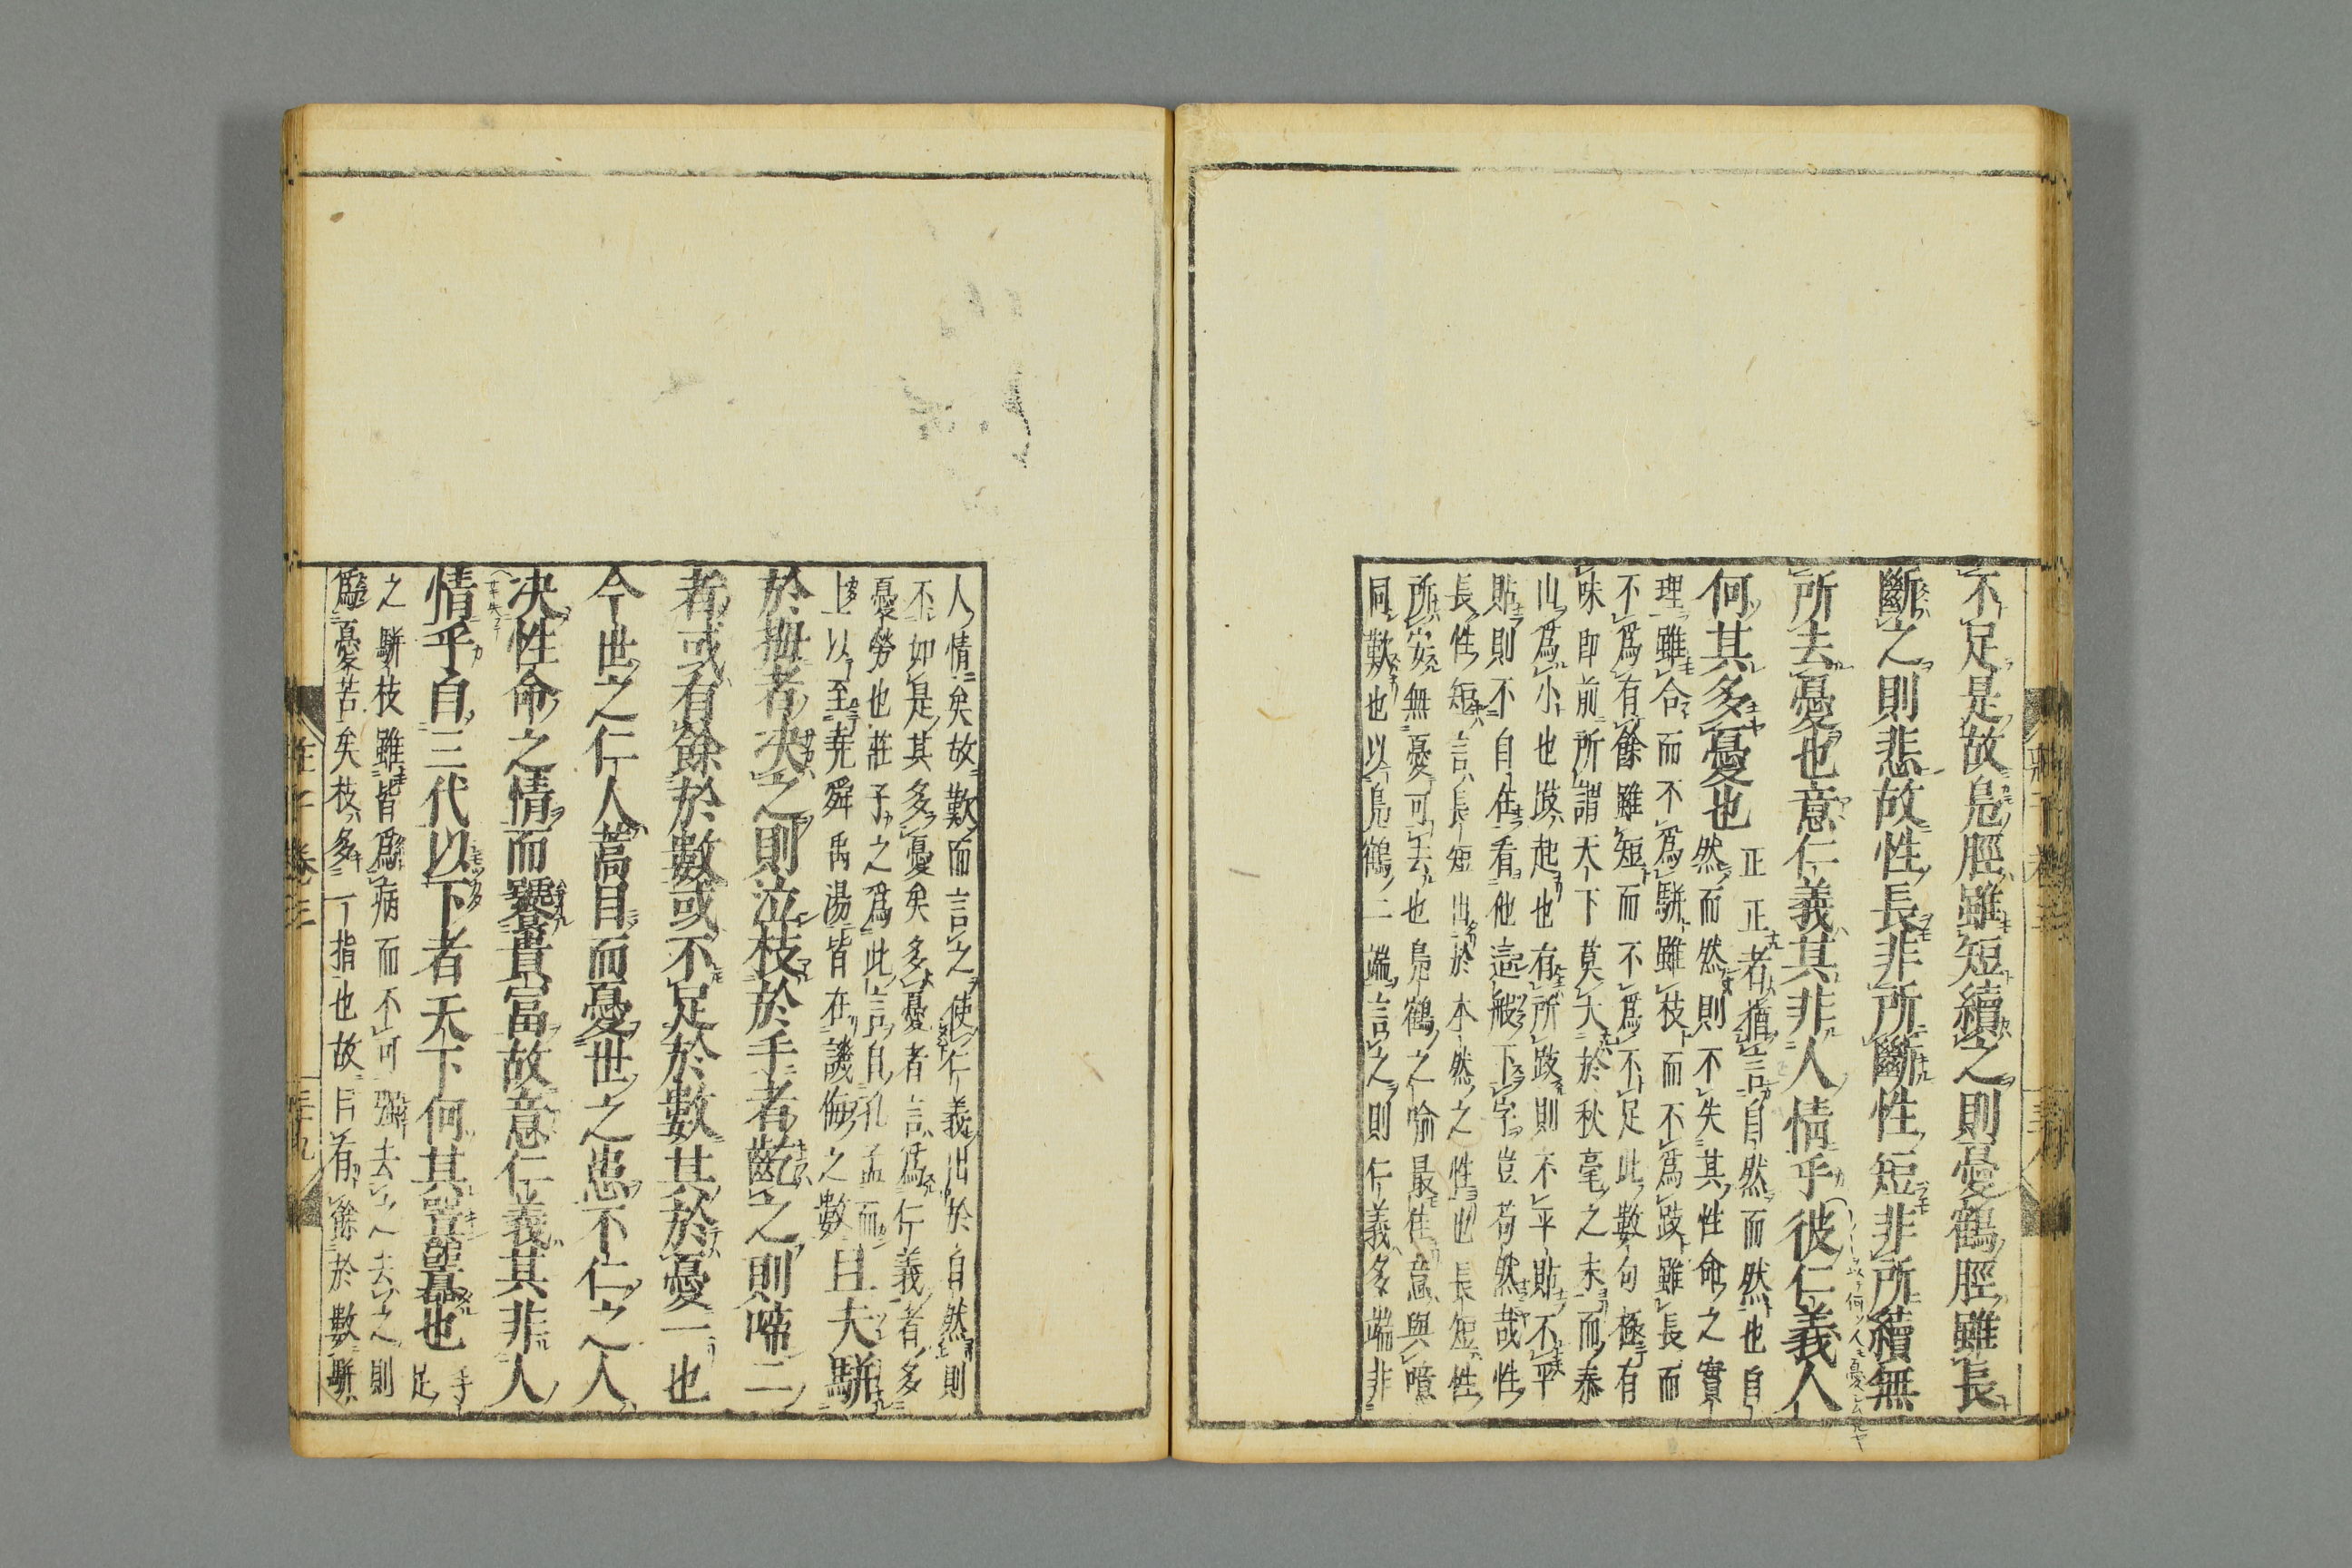 不足是故鳧脛雖短續之則憂鶴脛雖長
斷之則悲故性長非所斷性短非所續無
所去憂也意仁義其非人情乎彼仁義人
何其多憂也
正正者猶言自然而然也自
然而然則不失其性命之實
理雖合而不爲駢雖枝而不爲跂雖長而
不爲有餘雖短而不爲不足此數句極有
味即前所謂天下莫大於秋毫之末而泰
山爲小也跂起也有所跂則不平貼不平
貼則不自住看他這般下字豈苟然哉性
長性短言長短出於本然之性也長短性
所安無憂可去也鳧鶴之喻最佳意與噫
同歎也以鳧鶴二端言之則仁義多端非
人情矣故歎而言之使仁義出於自然則
不如是其多憂矣多憂者言爲仁義者多
憂勞也莊子之爲此言自孔孟而
上以至堯舜禹湯皆在譏侮之數
且夫駢
於拇者决之則泣枝於手者齕之則啼二
者或有餘於數或不足於數其於憂一也
今世之仁人蒿目而憂世之患不仁之人
决性命之情而饕貴富故意仁義其非人
情乎自三代以下者天下何其囂囂也
手
足
之駢枝雖皆爲病而不可强去之去之則
爲憂苦矣枝多一指也故曰有餘於數駢
莊子卷三
三十九